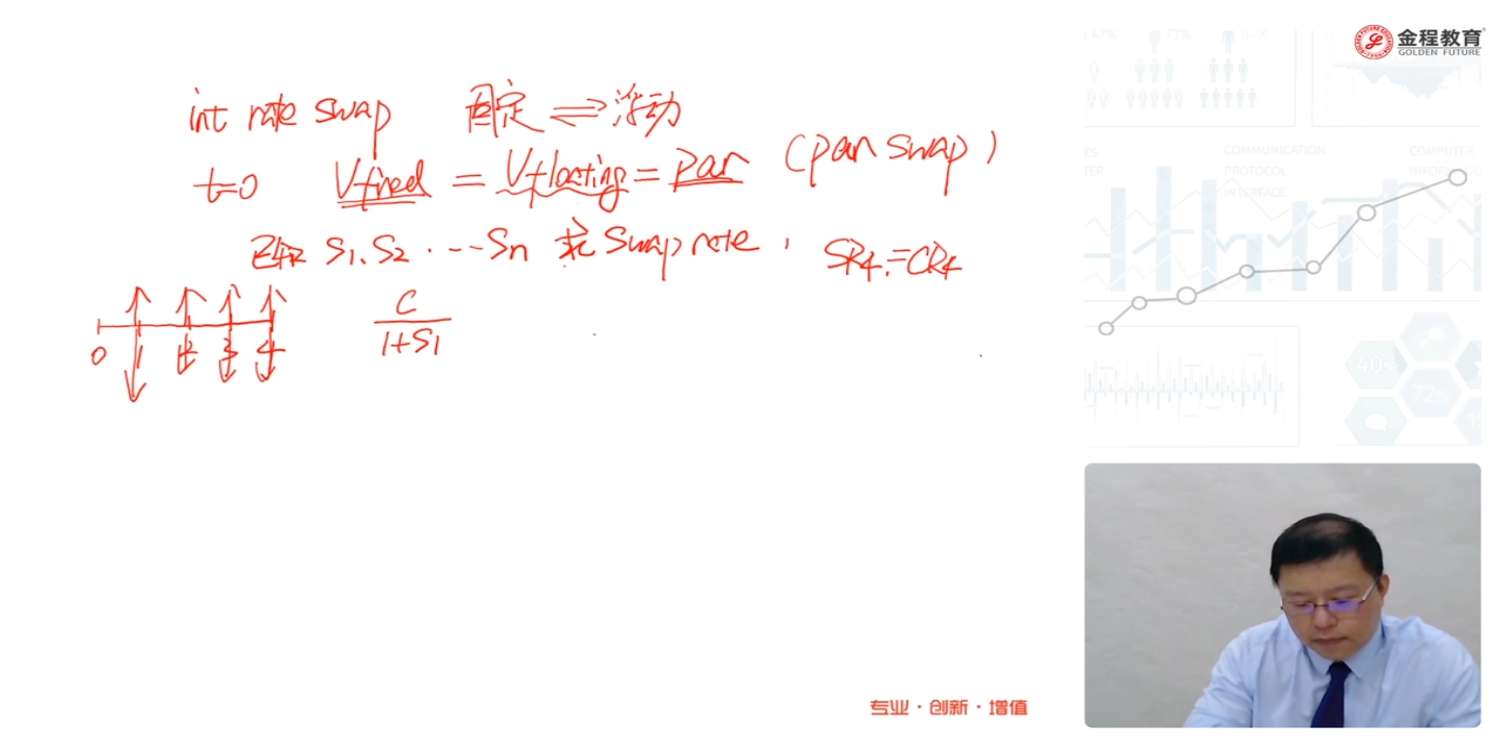 金程教育
GOLDEN FUTURE
int rate swap 固定 ⇌ 浮动
t=0 Vfixed = Vfloating = par (par swap)
已知 S1、S2 ····Sn 求 Swap rate, SR4 = CR4
0 1 2 3 4
C
1+S1
COMMUNICATION
PROTOCOL
INTERFACE
COMPUTER
专业·创新·增值